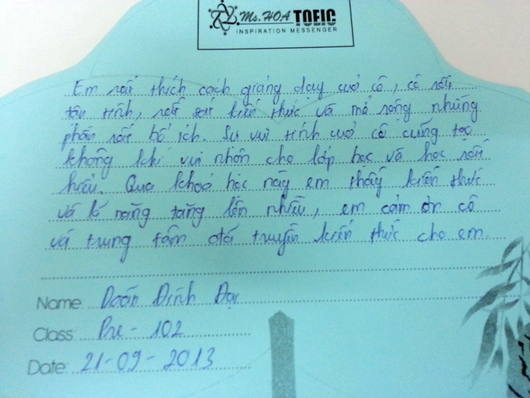 Ms. HOA TOEIC
INSPIRATION MESSENGER
Em rất thích cách giảng dạy của cô, cô rất
tận tình, rất sát kiến thức và mở rộng những
phần rất bổ ích. Sự vui tính của cô cũng tạo
không khí vui nhộn cho lớp học và học rất
hiểu. Qua khoá học này em thấy kiến thức
và kĩ năng tăng lên nhiều, em cảm ơn cô
và trung tâm đã truyền kiến thức cho em.
Name: Doãn Đình Đại
Class: Pre - 102
Date: 21-09-2013